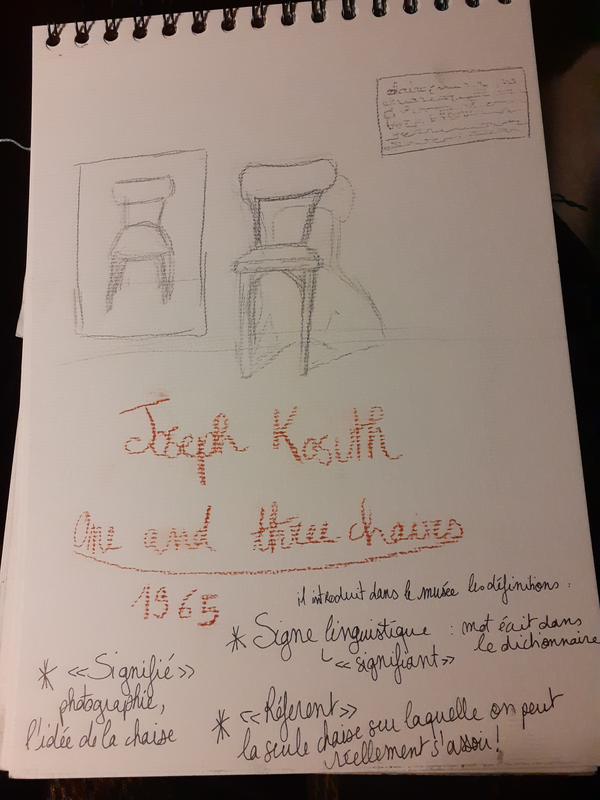 Joseph Kosuth
One and three chairs
1965
il introduit dans le musée les définitions :
* Signe linguistique : mot écrit dans
le dictionnaire
↳ <<signifiant>>
* <<Signifié>>
photographie,
l'idée de la chaise
* <<Réferent>>
la seule chaise sur laquelle on peut
réellement s'assoir !